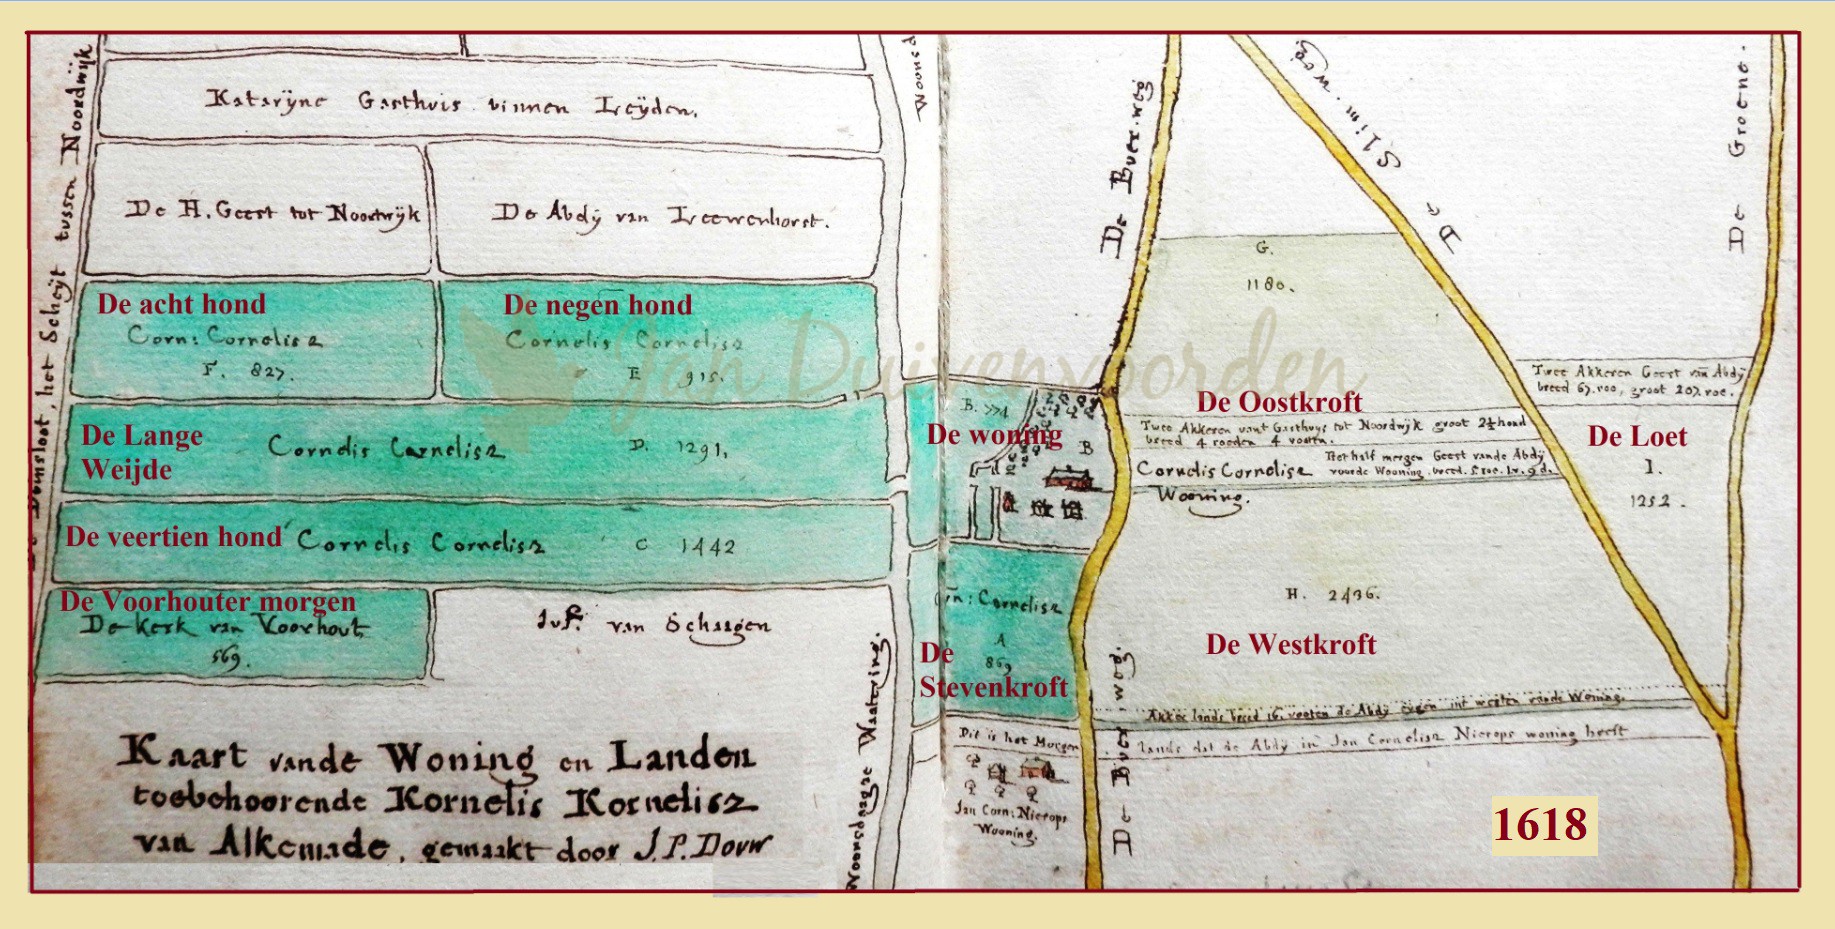 Katarÿne Gasthuis binnen Leÿden.
De H. Geest tot Noortwÿk
De Abdÿ van Leewenhorst.
De acht hond
Corn: Cornelisz
F. 827.
De negen hond
Cornelis Cornelisz
E 915.
De Lange
Weijde
Cornelis Cornelisz
D. 1291.
De veertien hond
Cornelis Cornelisz
C 1442
De Voorhouter morgen
De Kerk van Voorhout
569.
Juf. van Schaagen
Kaart vande Woning en Landen
toebehoorende Kornelis Kornelisz
van Alkemade, gemaakt door J.P. Douw
het Scheÿt tussen Noordwÿk
Woonsd
Woonsdaagze Waatering.
Jan Duivenvoorden
B.
De woning
B
Corn: Cornelisz
A
869
De
Stevenkroft
Dit is het Morgen
lands dat de Abdÿ in Jan Cornelisz Nierops woning heeft
Jan Corn: Nierops
Wooning.
De Buer.weg
De Buer weg.
G.
1180.
De Oostkroft
Twee Akkeren vant Gasthuys tot Noordwÿk groot 2½ hond
breed 4 rooden 4 voeten.
Cornelis Cornelisz
Wooning.
Het half morgen Geest vande Abdÿ
H. 2436.
De Westkroft
Akker lands breed 16. vooten de Abdÿ eygen int westen vande Woning.
De Slim.weg.
Twee Akkeren Geest van Abdÿ
breed 67. roe, groot 207. roe.
De Loet
I.
1252.
De Groene.
1618